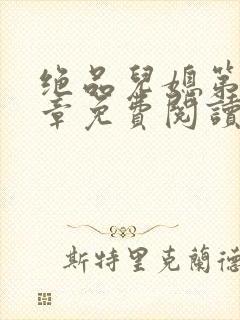 绝品兒媳第
章免費閱讀
斯特里克蘭德